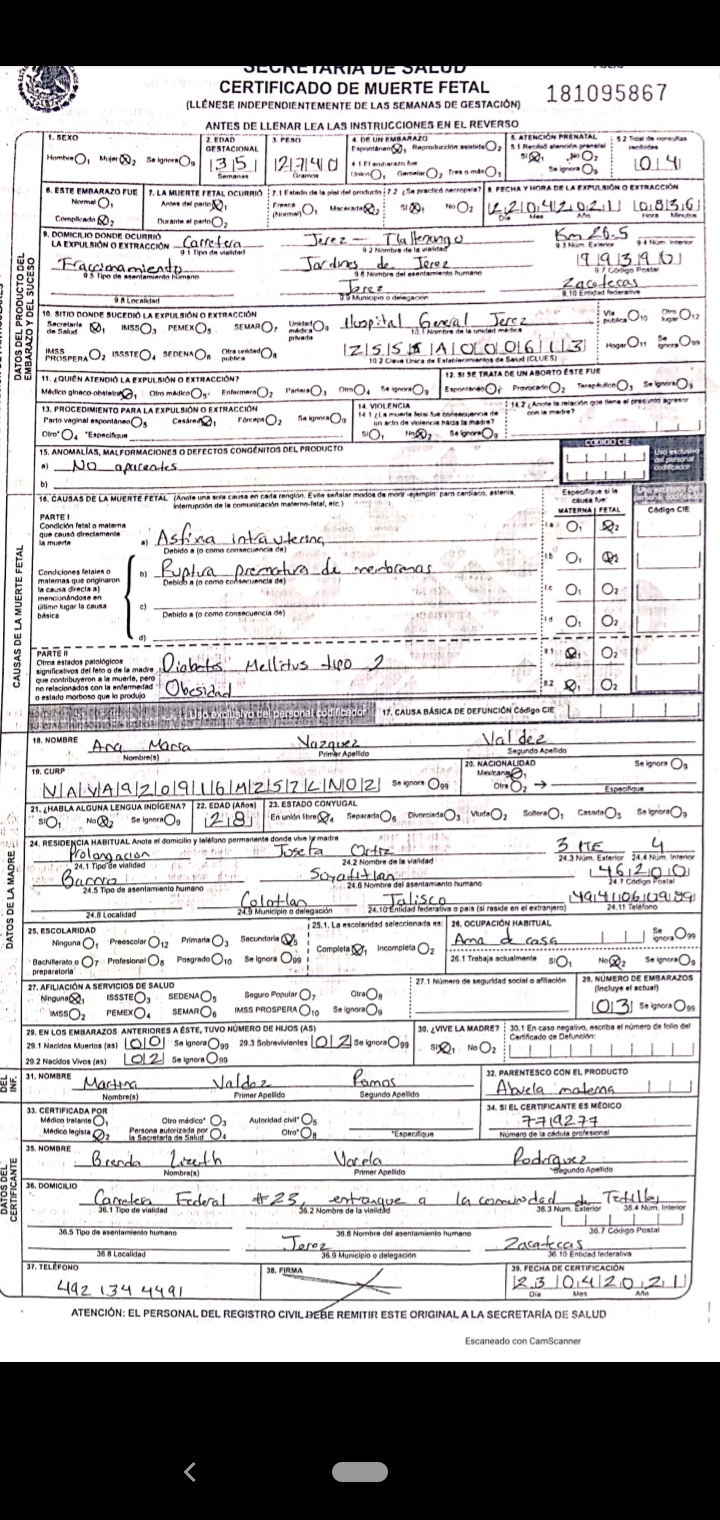 SECRETARÍA DE SALUD
CERTIFICADO DE MUERTE FETAL
181095867
(LLÉNESE INDEPENDIENTEMENTE DE LAS SEMANAS DE GESTACIÓN)
ANTES DE LLENAR LEA LAS INSTRUCCIONES EN EL REVERSO
DATOS DEL PRODUCTO DEL EMBARAZO Y DEL SUCESO
1. SEXO Hombre 1 Mujer 2 Se ignora 9
2. EDAD GESTACIONAL 35 Semanas
3. PESO 2740 Gramos
4. DE UN EMBARAZO Espontáneo Reproducción asistida 2
4.1 El embarazo fue Único 1 Gemelar 2 Tres o más
5. ATENCIÓN PRENATAL
5.1 Recibió atención prenatal Sí No 2 Se ignora 9
5.2 Total de consultas recibidas 04
6. ESTE EMBARAZO FUE Normal 1 Complicado 2
7. LA MUERTE FETAL OCURRIÓ Antes del parto 1 Durante el parto 2
7.1 Estado de la piel del producto Fresca (Normal) 1 Macerada 2
7.2 ¿Se practicó necropsia? Sí 1 No 2
8. FECHA Y HORA DE LA EXPULSIÓN O EXTRACCIÓN
22 04 2021 08 36
Día Mes Año Hora Minutos
9. DOMICILIO DONDE OCURRIÓ LA EXPULSIÓN O EXTRACCIÓN
Carretera Jerez - Tlaltenango Km 26.5
9.1 Tipo de vialidad 9.2 Nombre de la vialidad 9.3 Núm. Exterior 9.4 Núm. Interior
Fraccionamiento Jardines de Jerez 99390
9.5 Tipo de asentamiento humano 9.6 Nombre del asentamiento humano 9.7 Código Postal
Jerez Zacatecas
9.8 Localidad 9.9 Municipio o delegación 9.10 Entidad federativa
10. SITIO DONDE SUCEDIÓ LA EXPULSIÓN O EXTRACCIÓN
Secretaría de Salud 1 IMSS 3 PEMEX 5 SEMAR 7 Unidad médica privada 9
Hospital General Jerez
10.1 Nombre de la unidad médica
Vía pública 10 Otro lugar 12
IMSS PROSPERA 2 ISSSTE 4 SEDENA 6 Otra unidad pública 8
10.2 Clave Única de Establecimientos de Salud (CLUES)
Hogar 11 Se ignora 99
11. ¿QUIÉN ATENDIÓ LA EXPULSIÓN O EXTRACCIÓN?
Médico gineco-obstetra 1 Otro médico Enfermera 2 Partera 3 Otro 4 Se ignora 9
12. SI SE TRATA DE UN ABORTO ÉSTE FUE
Espontáneo 1 Provocado 2 Terapéutico 3 Se ignora 9
13. PROCEDIMIENTO PARA LA EXPULSIÓN O EXTRACCIÓN
Parto vaginal espontáneo Cesárea 1 Fórceps 2 Se ignora 9
Otro* 4 *Especifique
14. VIOLENCIA
14.1 ¿La muerte fetal fue consecuencia de un acto de violencia hacia la madre?
Sí 1 No 2 Se ignora 9
14.2 ¿Anote la relación que tiene el presunto agresor con la madre?
15. ANOMALÍAS, MALFORMACIONES O DEFECTOS CONGÉNITOS DEL PRODUCTO
CÓDIGO CIE
Uso exclusivo del personal codificador
a) No aparentes
b)
CAUSAS DE LA MUERTE FETAL
16. CAUSAS DE LA MUERTE FETAL (Anote una sola causa en cada renglón. Evite señalar modos de morir -ejemplo: paro cardiaco, astenia, interrupción de la comunicación materno-fetal, etc.)
Especifique si la causa fue: MATERNA FETAL
Código CIE
PARTE I
Condición fetal o materna que causó directamente la muerte
a) Asfixia intrauterina
Debido a (o como consecuencia de)
Condiciones fetales o maternas que originaron la causa directa a) mencionándose en último lugar la causa básica
b) Ruptura prematura de membranas
Debido a (o como consecuencia de)
c)
Debido a (o como consecuencia de)
d)
PARTE II
Otros estados patológicos significativos del feto o de la madre que contribuyeron a la muerte, pero no relacionados con la enfermedad o estado morboso que lo produjo
Diabetes Mellitus tipo 2
Obesidad
Uso exclusivo del personal codificador
17. CAUSA BÁSICA DE DEFUNCIÓN Código CIE
DATOS DE LA MADRE
18. NOMBRE Ana Maria Vazquez Valdez
Nombre(s) Primer Apellido Segundo Apellido
19. CURP VAVA920916MZSZLN02 Se ignora 99
20. NACIONALIDAD Mexicana 1 Se ignora 9
Otra 2 → Especifique
21. ¿HABLA ALGUNA LENGUA INDÍGENA? Sí 1 No 2 Se ignora 9
22. EDAD (Años) 28
23. ESTADO CONYUGAL
En unión libre 4 Separada 6 Divorciada 3 Viuda 2 Soltera 1 Casada 5 Se ignora 9
24. RESIDENCIA HABITUAL Anote el domicilio y teléfono permanente donde vive la madre
Prolongacion Josefa Ortiz 3 4
24.1 Tipo de vialidad 24.2 Nombre de la vialidad 24.3 Núm. Exterior 24.4 Núm. Interior
Barrio 46200
24.5 Tipo de asentamiento humano 24.6 Nombre del asentamiento humano 24.7 Código Postal
Colotlan Jalisco
24.8 Localidad 24.9 Municipio o delegación 24.10 Entidad federativa o país (si reside en el extranjero) 24.11 Teléfono
25. ESCOLARIDAD
Ninguna 1 Preescolar 12 Primaria 3 Secundaria 5
Bachillerato o preparatoria 7 Profesional 8 Posgrado 10 Se ignora 99
25.1. La escolaridad seleccionada es:
Completa 1 Incompleta 2
26. OCUPACIÓN HABITUAL
Ama de casa
Se ignora 99
26.1 Trabaja actualmente Sí 1 No 2 Se ignora 9
27. AFILIACIÓN A SERVICIOS DE SALUD
Ninguna 1 ISSSTE 3 SEDENA 5 Seguro Popular 7 Otra 8
IMSS 2 PEMEX 4 SEMAR 6 IMSS PROSPERA 10 Se ignora
27.1 Número de seguridad social o afiliación
28. NÚMERO DE EMBARAZOS (Incluye el actual)
03 Se ignora 99
29. EN LOS EMBARAZOS ANTERIORES A ÉSTE, TUVO NÚMERO DE HIJOS (AS)
29.1 Nacidos Muertos (as) 00 Se ignora 99 29.3 Sobrevivientes 02 Se ignora 99
29.2 Nacidos Vivos (as) 02 Se ignora 99
30. ¿VIVE LA MADRE? Sí 1 No 2
30.1 En caso negativo, escriba el número de folio del Certificado de Defunción:
DEL INF.
31. NOMBRE Martina Valdez Ramos
Nombre(s) Primer Apellido Segundo Apellido
32. PARENTESCO CON EL PRODUCTO
Abuela materna
DATOS DEL CERTIFICANTE
33. CERTIFICADA POR
Médico tratante 1 Otro médico* 3 Autoridad civil* 5
Médico legista 2 Persona autorizada por la Secretaría de Salud 4 Otro* 8 *Especifique
34. SI EL CERTIFICANTE ES MÉDICO
7719277
Número de la cédula profesional
35. NOMBRE Brenda Lizeth Varela Rodríguez
Nombre(s) Primer Apellido Segundo Apellido
36. DOMICILIO
Carretera Federal #23, entronque a la comunidad de Tetillas
36.1 Tipo de vialidad 36.2 Nombre de la vialidad 36.3 Núm. Exterior 36.4 Núm. Interior
36.5 Tipo de asentamiento humano 36.6 Nombre del asentamiento humano 36.7 Código Postal
Jerez Zacatecas
36.8 Localidad 36.9 Municipio o delegación 36.10 Entidad federativa
37. TELÉFONO
492 134 4491
38. FIRMA
39. FECHA DE CERTIFICACIÓN
23 04 2021
Día Mes Año
ATENCIÓN: EL PERSONAL DEL REGISTRO CIVIL DEBE REMITIR ESTE ORIGINAL A LA SECRETARÍA DE SALUD
Escaneado con CamScanner